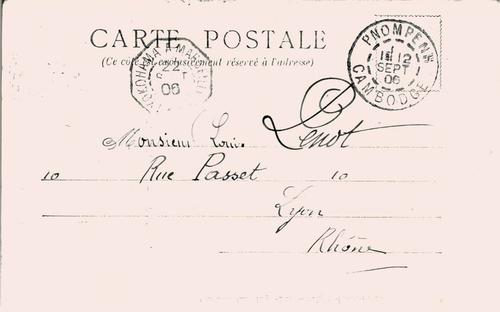 CARTE POSTALE
(Ce côté est exclusivement réservé à l'adresse)
YOKOHAMA A MARSEILLE
22
SEPT
06
PNOMPENH
12
SEPT
06
CAMBODGE
Monsieur Louis Penot
10 Rue Passet 10
Lyon
Rhône